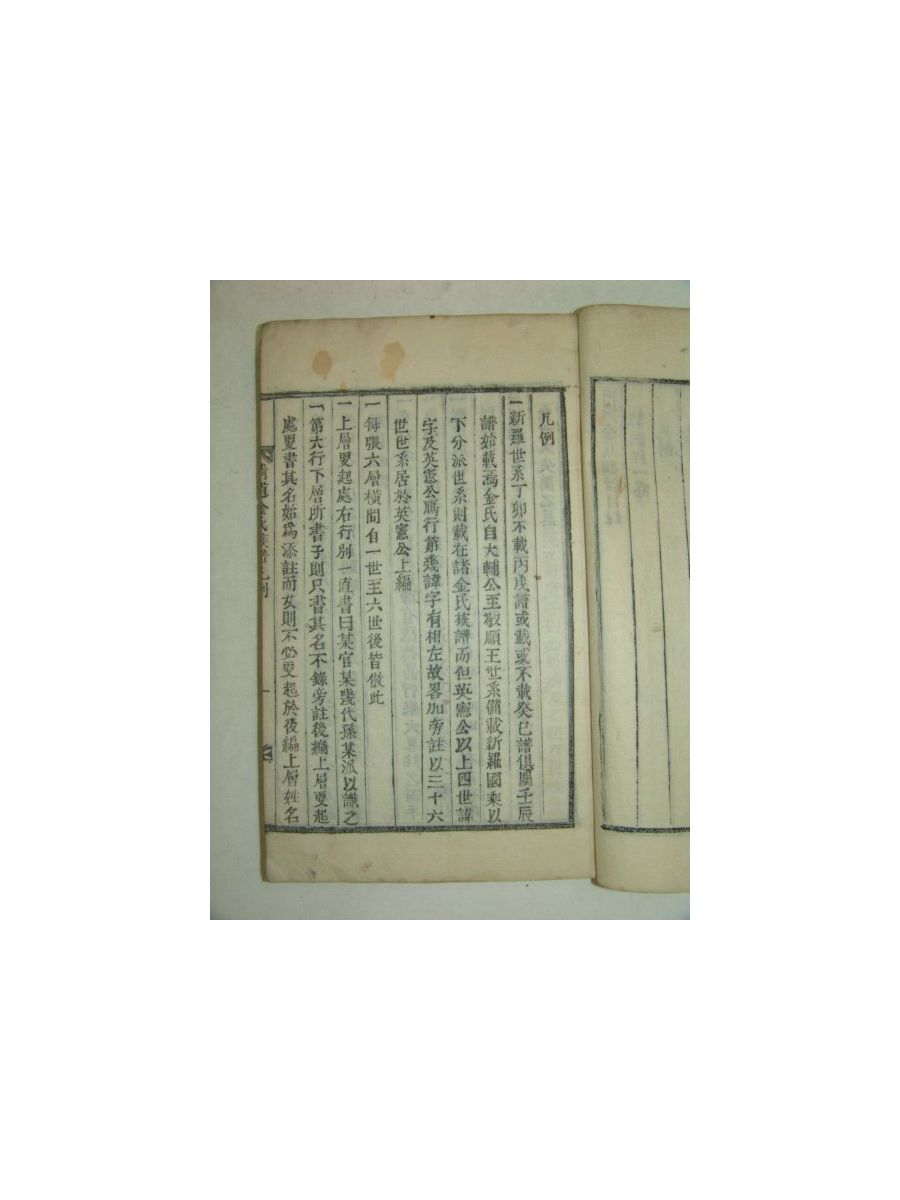 凡例
一新羅世系丁卯不載丙戌譜或載或不載癸巳譜俱闕壬辰
譜始載焉金氏自大輔公至敬順王世系備載新羅國乘以
下分派世系則載在諸金氏族譜而但英憲公以上四世諱
字及英憲公鴈行第幾諱字有相左故畧加旁註以三十六
世世系居於英憲公上編
一每張六層橫間自一世至六世後皆倣此
一上層更起處右行別一直書曰某官某幾代孫某派以識之
一第六行下層所書子則只書其名不錄旁註後編上層更起
處更書其名始爲添註而女則不必更起於後編上層姓名
金氏族譜凡例 一